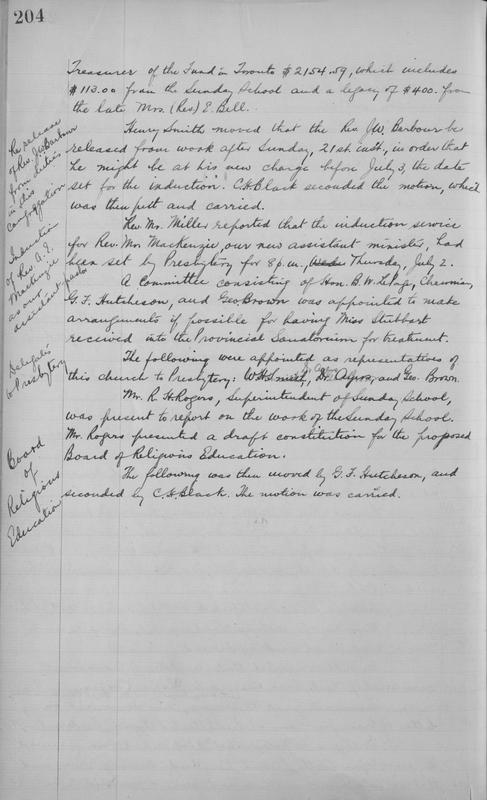 204
Treasurer of the Fund in Toronto $2154.59, which includes
$113.00 from the Sunday School and a legacy of $400. from
the late Mrs. (Rev) E. Bell.
Re release
of Rev. JW. Barbour
from duties
in this
congregation
Henry Smith moved that the Rev. JW. Barbour be
released from work after Sunday, 21st. inst., in order that
he might be at his new charge before July 3, the date
set for the induction. C.H. Black seconded the motion, which
was then putt and carried.
Induction
of Rev. A. E.
MacKenzie
as new
assistant pastor
Rev. Mr. Miller reported that the induction service
for Rev. Mr. MacKenzie, our new assistant minister, had
been set by Presbytery for 8 p.m., Thursday, July 2.
A Committee consisting of Hon. B. W. LePage, Chairman,
G. F. Hutcheson, and Geo Brown was appointed to make
arrangements if possible for having Miss Stubbart
received into the Provincial Sanatorium for treatment.
Delegates
to Presbytery
The following were appointed as representatives of
this church to Presbytery: W. H. and Geo. Brown.
Mr. R. H. Rogers, Superintendent of Sunday School,
was present to report on the work of the Sunday School.
Mr. Rogers presented a draft constitution for the proposed
Board of Religious Education.
Board
of
Religious
Education
The following was then moved by G. F. Hutcheson, and
seconded by C. H. Black. The motion was carried.